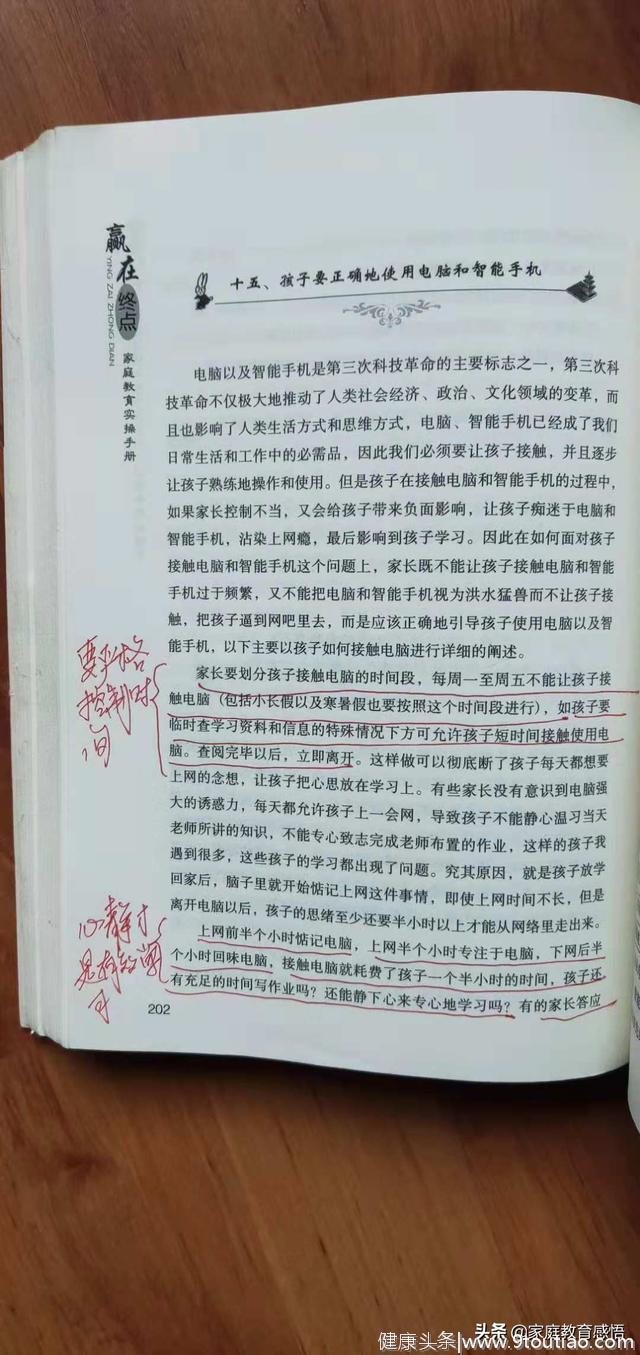 赢在终点
YING ZAI ZHONG DIAN
家庭教育实操手册
十五、孩子要正确地使用电脑和智能手机
电脑以及智能手机是第三次科技革命的主要标志之一，第三次科
技革命不仅极大地推动了人类社会经济、政治、文化领域的变革，而
且也影响了人类生活方式和思维方式，电脑、智能手机已经成了我们
日常生活和工作中的必需品，因此我们必须要让孩子接触，并且逐步
让孩子熟练地操作和使用。但是孩子在接触电脑和智能手机的过程中，
如果家长控制不当，又会给孩子带来负面影响，让孩子痴迷于电脑和
智能手机，沾染上网瘾，最后影响到孩子学习。因此在如何面对孩子
接触电脑和智能手机这个问题上，家长既不能让孩子接触电脑和智能
手机过于频繁，又不能把电脑和智能手机视为洪水猛兽而不让孩子接
触，把孩子逼到网吧里去，而是应该正确地引导孩子使用电脑以及智
能手机，以下主要以孩子如何接触电脑进行详细的阐述。
要严格
控制时
间
家长要划分孩子接触电脑的时间段，每周一至周五不能让孩子接
触电脑（包括小长假以及寒暑假也要按照这个时间段进行），如孩子要
临时查学习资料和信息的特殊情况下方可允许孩子短时间接触使用电
脑。查阅完毕以后，立即离开。这样做可以彻底断了孩子每天都想要
上网的念想，让孩子把心思放在学习上。有些家长没有意识到电脑强
大的诱惑力，每天都允许孩子上一会网，导致孩子不能静心温习当天
老师所讲的知识，不能专心致志完成老师布置的作业，这样的孩子我
遇到很多，这些孩子的学习都出现了问题。究其原因，就是孩子放学
回家后，脑子里就开始惦记上网这件事情，即使上网时间不长，但是
离开电脑以后，孩子的思绪至少还要半小时以上才能从网络里走出来。
心静才
上网前半个小时惦记电脑，上网半个小时专注于电脑，下网后半
个小时回味电脑，接触电脑就耗费了孩子一个半小时的时间，孩子还
有充足的时间写作业吗？还能静下心来专心地学习吗？有的家长答应
202
头条@家庭教育感悟
健康头条|www.9toutiao.com